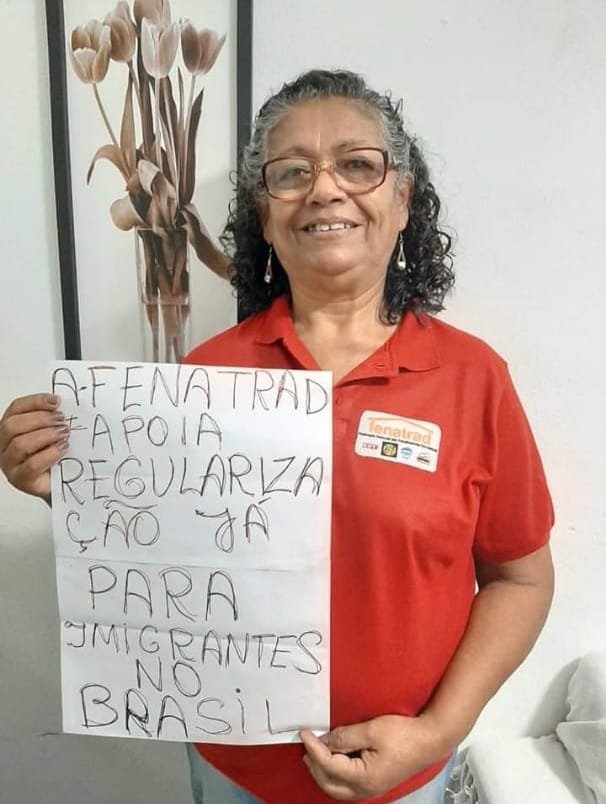 A-FENATRAD
APOIA
REGULARIZA
ÇÃO JÁ
PARA
IMIGRANTES
NO
BRASIL
fenatrad